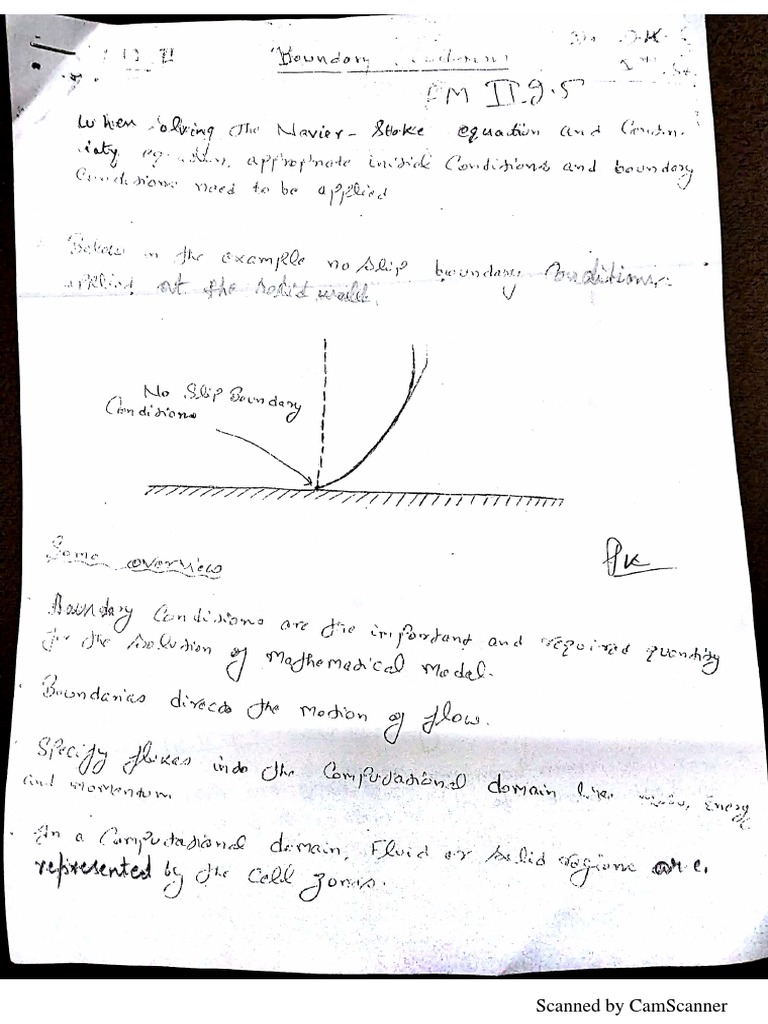 Boundary
PM II.9.5
When solving the Navier-Stoke equation and Contin-
iaty equation, appropriate initide Conditions and boundary
Conditions need to be applied
Below in the example no slip boundary Conditions.
applied at the solid wall.
No Slip Boundary
Conditions
Some overview
Boundary Conditions are the important and required quantity
for the solution of Mathematical Model.
Boundarias directs the motion of flow.
Specify fluxes into the Computational domain like mass, Energy
and momentum
In a Computational domain, Fluid or solid regions are.
represented by the Cell zones.
Scanned by CamScanner